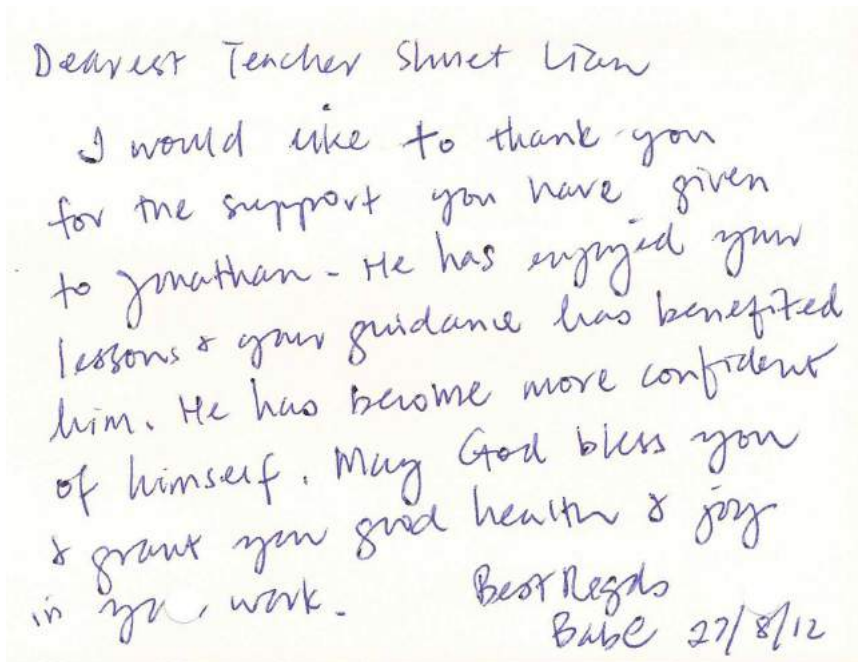 Dearest Teacher Shuet Lian
I would like to thank you
for the support you have given
to Jonathan - He has enjoyed your
lessons & your guidance has benefited
him. He has become more confident
of himself. May God bless you
& grant you good health & joy
in yo, work.
Best Regds
Babe 27/8/12